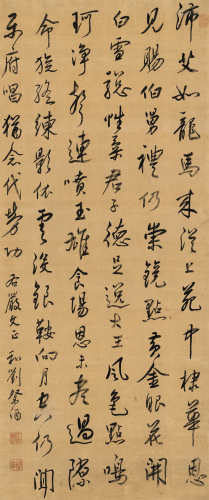 沛艾如龍馬來從上苑中棣華恩
見賜伯舅禮仍崇鏡點黃金眼花開
白雪驄性柔君子德足逸大王風色點鳴
珂淨聲連噴玉雄食場恩未盡過隙
命旋終練影依雲沒銀鞍向月空仍聞
樂府唱猶念代勞功 右嚴文正和劉祭酒